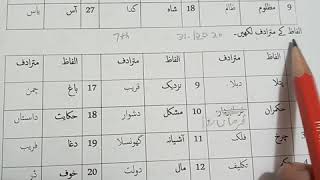 9 مظلوم ظالم 18 شاہ گدا 27 آس یاس
7th 31-1-2020
الفاظ کے مترادف لکھیں۔
الفاظ مترادف الفاظ مترادف الفاظ مترادف
دبلا 9 نزدیک قریب 17 باغ چمن
حکمران 10 مشکل دشوار 18 حکایت داستان
چرخ فلک 11 آشیانہ گھونسلا 19 دغا فریب
تکلیف 12 مال دولت 20 خوف ڈر